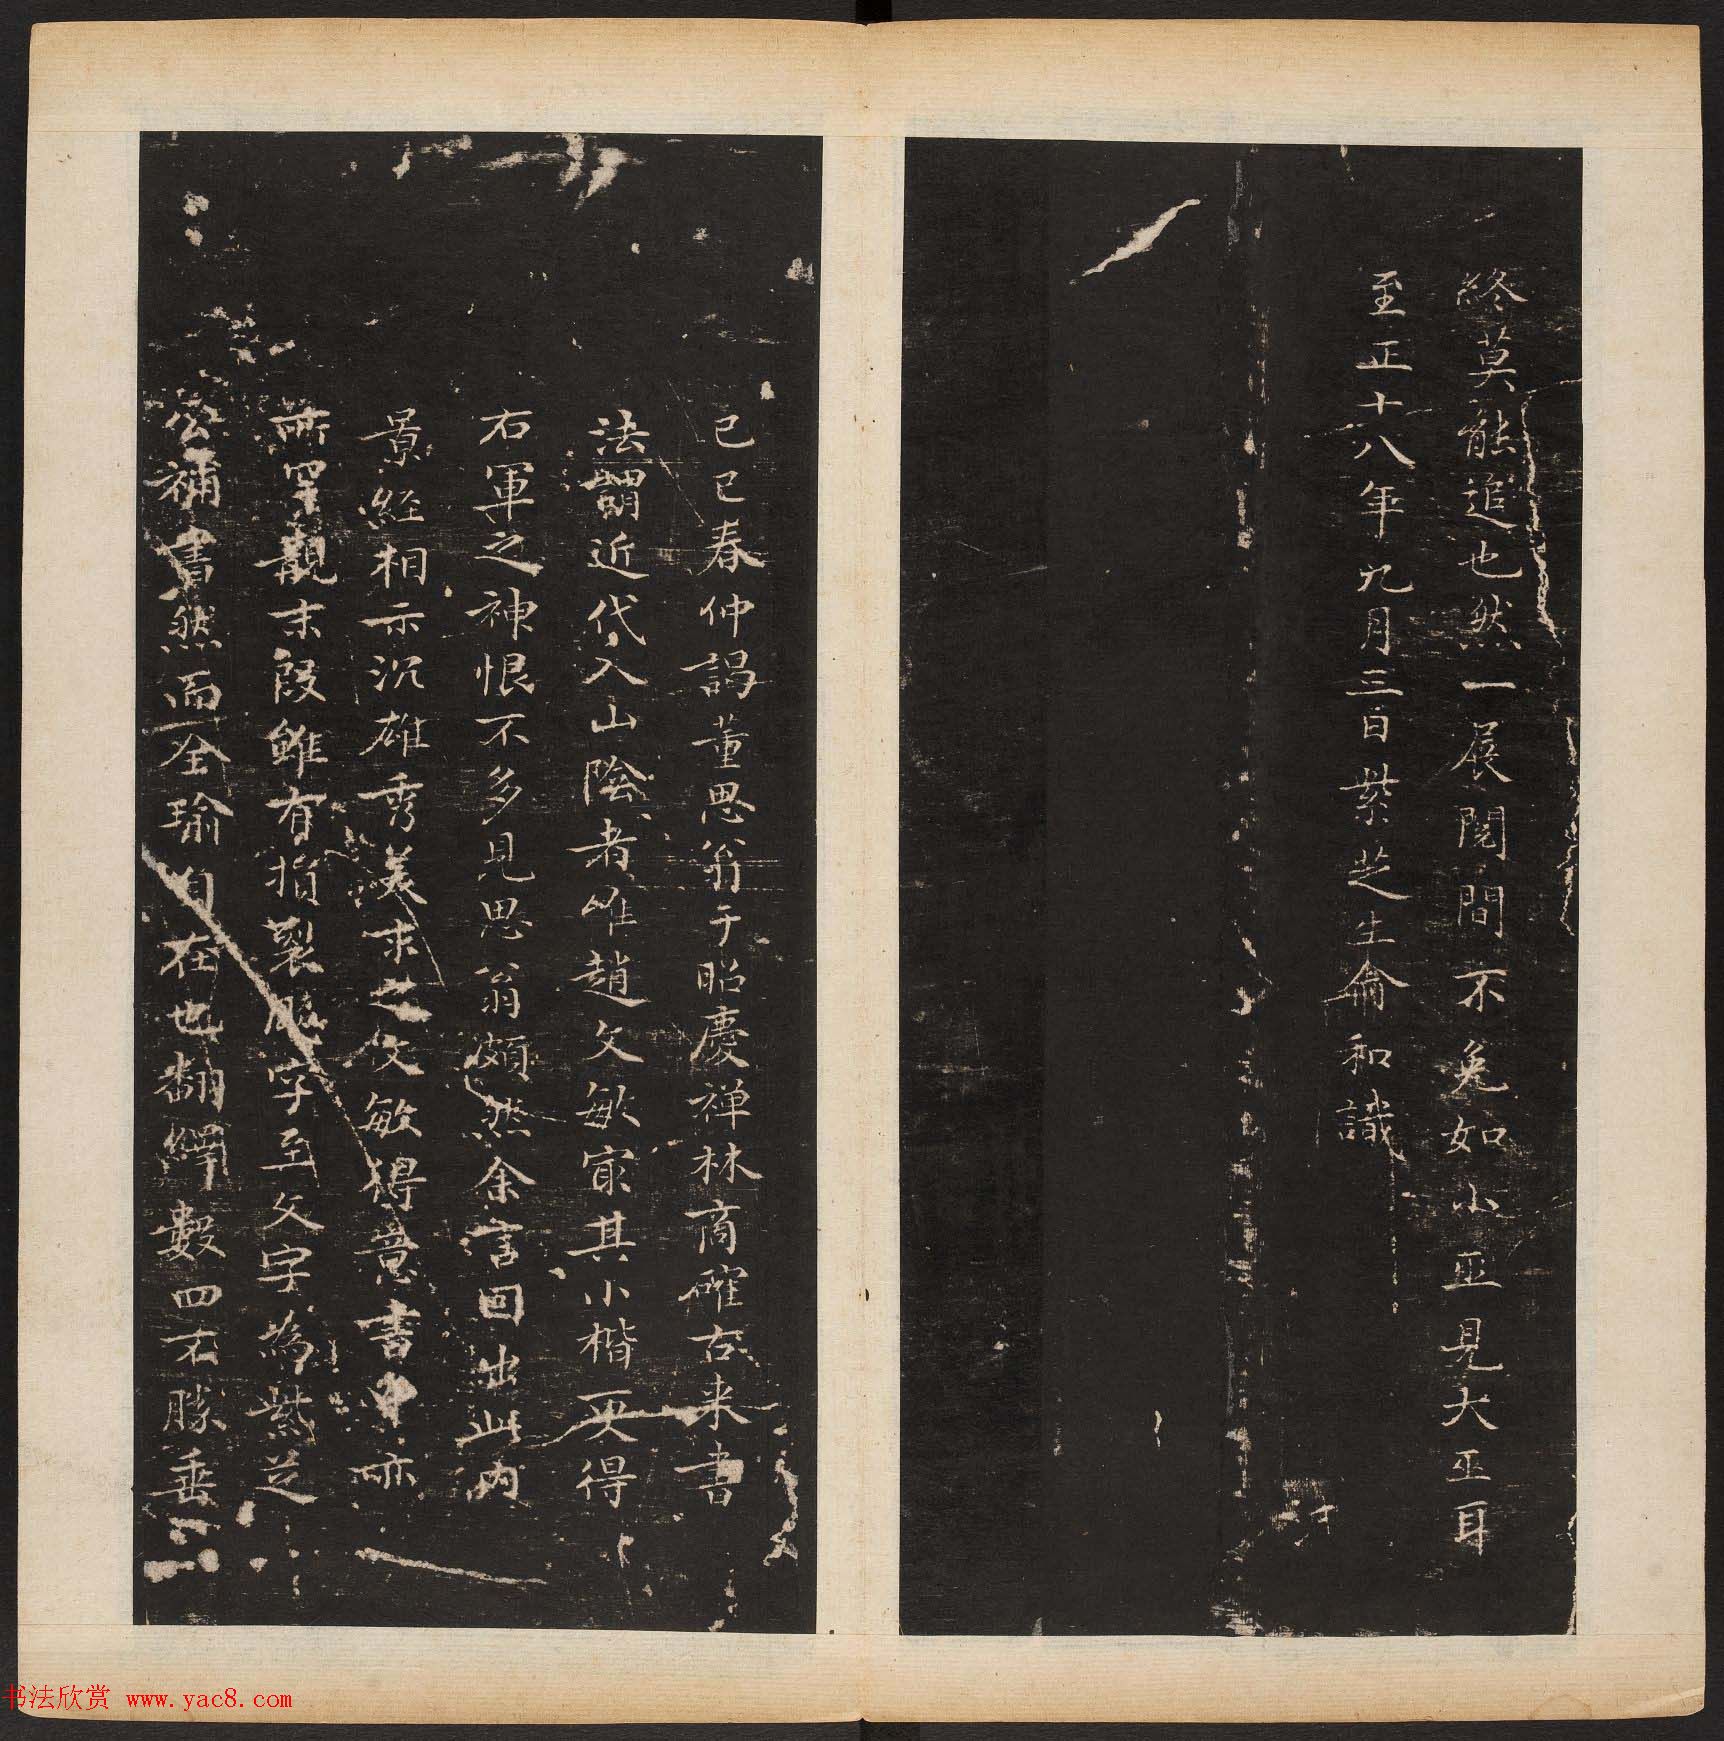 終莫能追也然一展閱間不免如小巫見大巫耳
至正十八年九月三日紫芝生俞和識
己巳春仲謁董思翁于昭慶禪林商確古来書
法謂近代入山陰者唯趙文敏㝡其小楷更得
右軍之神恨不多見思翁頗然余言因出此內
景經相示沉雄秀美求之文敏得意書中亦
所罕觀末段雖有損裂脫字至父字為紫芝
公補書然而全瑜自在也翻繹數四不勝垂
书法欣赏 www.yac8.com